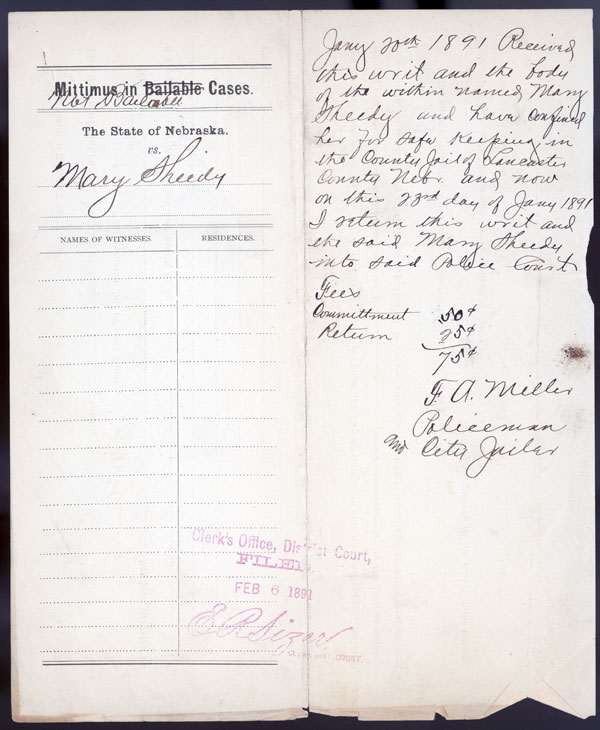 Mittimus in Bailable Cases.
Not Bailable
The State of Nebraska.
vs.
Mary Sheedy
NAMES OF WITNESSES.
RESIDENCES.
Clerk's Office, District Court,
FILED
FEB 6 1891
E. R. Sizer
Jany 20th 1891 Received
this writ and the body
of the within named Mary
Sheedy and have confined
her for safe keeping in
the County Jail of Lancaster
County Nebr. and now
on this 23rd day of Jany 1891
I return this writ and
the said Mary Sheedy
into said Police Court
Fees
Committment 50¢
Return 25¢
75¢
F. A. Miller
Policeman
and City Jailer